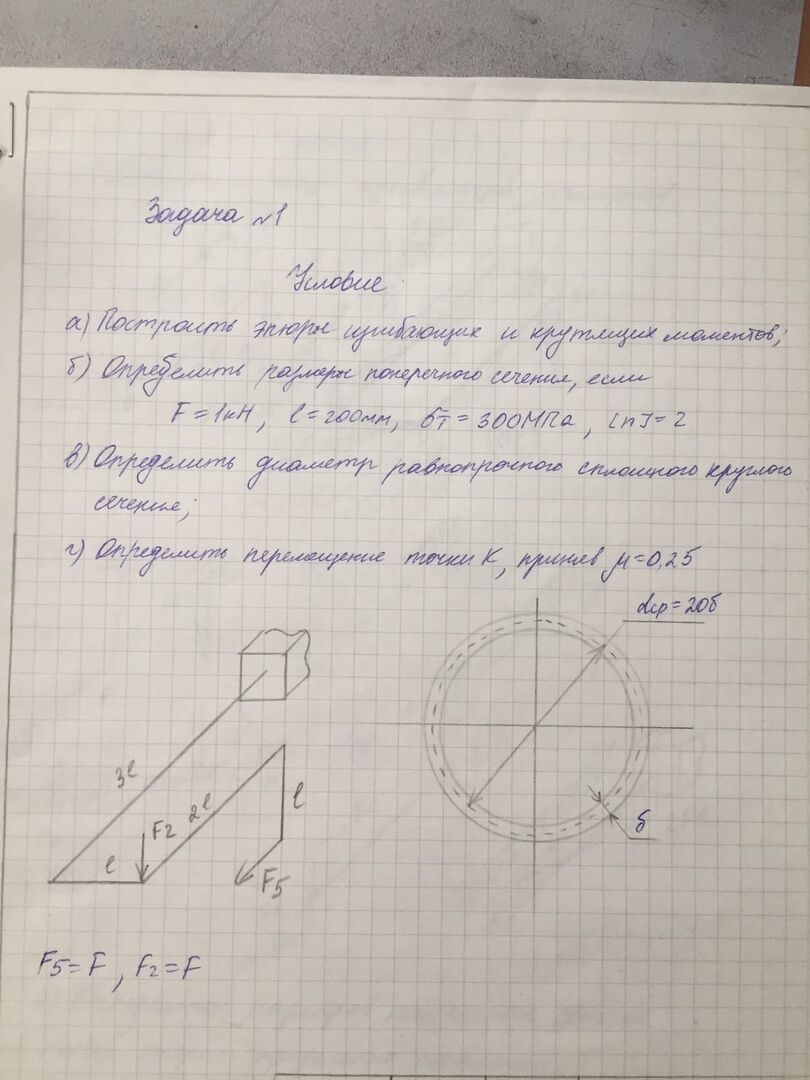 Задача №1
Условие
а) Построить эпюры изгибающих и крутящих моментов;
б) Определить размеры поперечного сечения, если
F = 1кН, l = 200мм, σт = 300МПа, [n] = 2
в) Определить диаметр равнопрочного сплошного круглого
сечения;
г) Определить перемещение точки К, приняв μ=0,25
dср = 20δ
3l
2l
l
F2
l
F5
δ
F5 = F, F2 = F